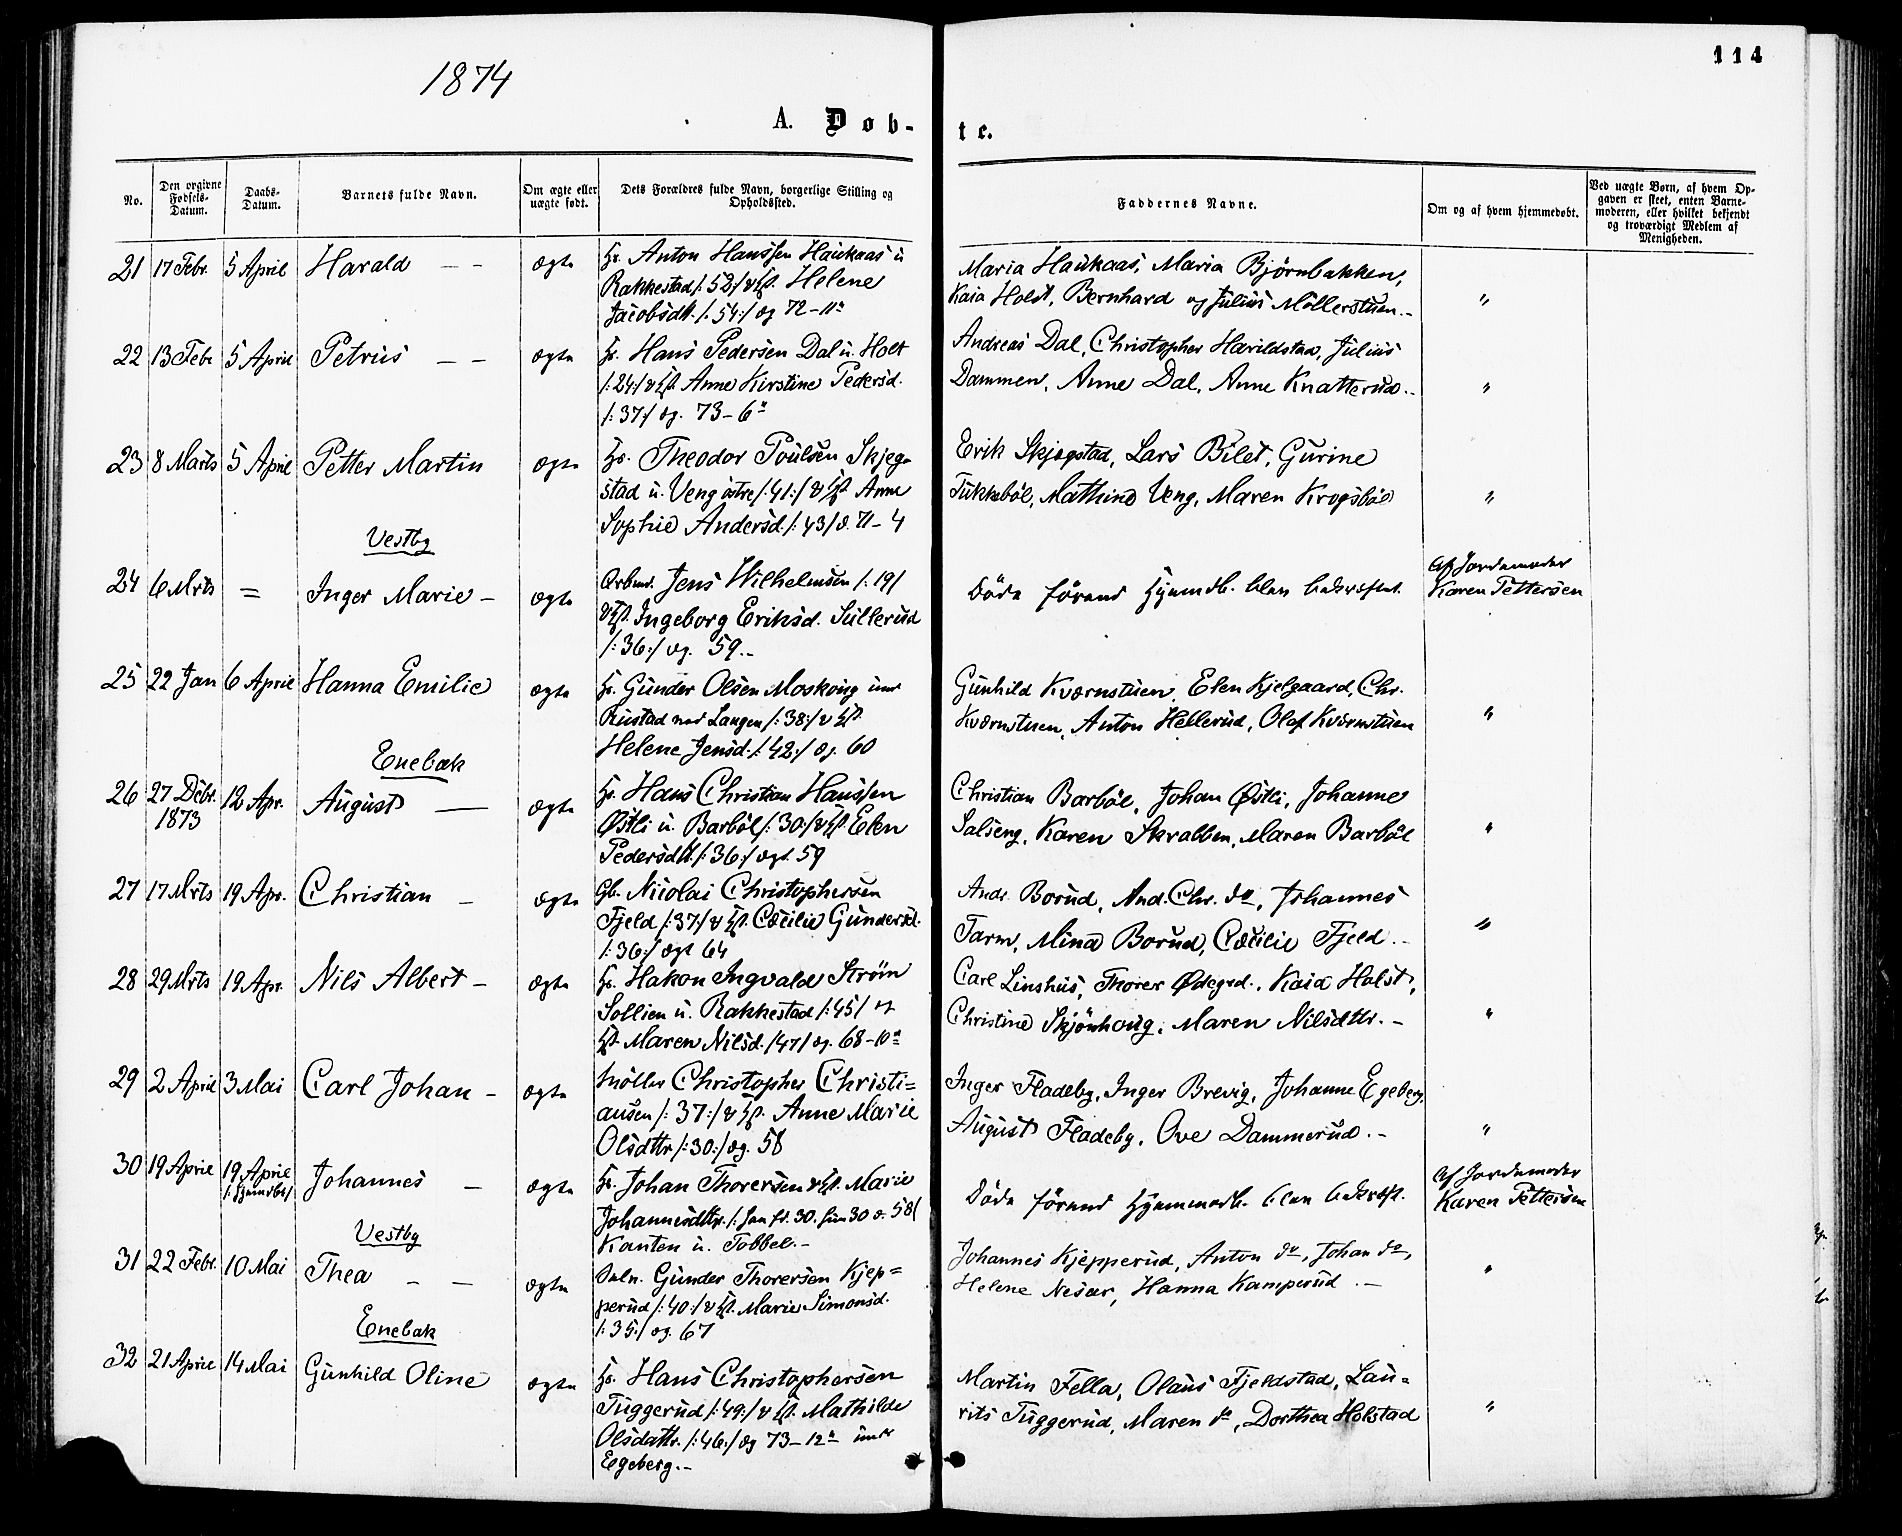 114
1874
A. Døb-
te.
No.
Den opgivne Fødsels-Datum.
Daabs-Datum.
Barnets fulde Navn.
Om ægte eller uægte født.
Dets Forældres fulde Navn, borgerlige Stilling og Opholdssted.
Faddernes Navne.
Om og af hvem hjemmedøbt.
Ved uægte Børn, af hvem Opgaven er skeet, enten Barnemoderen, eller hvilket bekjendt og troværdigt Medlem af Menigheden.
21 17 Febr. 5 April Harald — — ægte
Hs. Anton Hanssen Haukaas u
Rakkestad /: 52:/ & Hst. Helene
Jacobsdtt. /: 54:/ og 72-11"
Maria Haukaas, Maria Björnbakken,
Kaia Holst, Bernhard og Julius Möllerstuen.- "
22 13 Febr 5 April Petrus — — ægte
Hs. Hans Pedersen Dal u. Holt
/: 24:/ & Hst. Anne Kirstine Pedersd.
/: 37:/ æg. 73-6"
Andreas Dal, Christopher Harildstad, Julius
Dammen, Anne Dal, Anne Knatterud.- "
23 8 Marts 5 April Petter Martin ægte
Hs. Theodor Poulsen Skjeg-
stad u. Veng östre /: 41:/ & Hst Anne
Sophie Andersd. /: 43/ æ. 71-4
Erik Skjegstad, Lars Bilet, Gurine
Tukkeböl, Mathine Veng, Maren Krogsböl "
Vestby
24 6 Mrts = Inger Marie - ægte
Arbmd. Jens Wilhelmsen /: 19/
& Hst. Ingeborg Eriksd. Sullerud
/: 36:/ æg. 59.-
Döde förend Hjemmdb. blev bekræftet.
Af Jordemoder
Karen Pettersen
25 22 Jan 6 April Hanna Emilie ægte
Hs. Gunder Olsen Moskoug und
Rustad ved Langen /: 38:/ & Hst.
Helene Jensd. /: 42:/ æg. 60
Gunhild Kværnstuen, Elen Kjelgaard, Chr.
Kværnstuen, Anton Hellerud, Olaf Kværnstuen "
Enebak
26 27 Debr. 1873 12 Apr. August — ægte
Hs. Hans Christian Hanssen
Østli u. Barböl /: 30:/ & Hst Elen
Pedersdtt. /: 36:/ ægt. 59
Christian Barböl, Johan Østli, Johanne
Salseng, Karen Skrabben, Maren Barböl "
27 17 Mrts 19 Apr. Christian - ægte
Gb. Nicolai Christophersen
Fjeld /: 37:/ & Hst. Cæcilie Gundersd.
/: 36:/ ægt 64
Andr. Borud, And. Chr. do, Johannes
Tarm, Mina Borud, Cæcilie Fjeld.- "
28 29 Mrts 19 Apr. Nils Albert - ægte
Hs. Hakon Ingvald Ström
Sollien u. Rakkestad /: 45/ &
Hst. Maren Nilsd. /47/ æg. 68-10"
Carl Linshus, Thorer Ødegrd., Kaia Holst,
Christine Skjönhoug, Maren Nilsdttr.- "
29 2 April 3 Mai Carl Johan - ægte
Møller Christopher Christi=
ansen /: 37:/ & Hst. Anne Marie
Olsdttr /: 30:/ æg. 58
Inger Fladeby, Inger Brevig, Johanne Egeberg,
August Fladeby, Ove Dammerud.- "
30 19 April 19 April /: hjemdbt/ Johannes - ægte
Hs. Johan Thorersen & Hst. Marie
Johannesdttr. /: han fd. 30. hun 30 æ. 58/
Kanten u. Tobbel.-
Döde förend Hjemmedb. blev bekræft.
Af Jordemoder
Karen Pettersen
Vestby
31 22 Febr. 10 Mai Thea - — ægte
Gunder Thorersen Kjep=
perud /: 40:/ & Hst. Marie Simonsd.
/: 35:/ æg. 67
Johannes Kjepperud, Anton do, Johan do,
Helene Nesær, Hanna Kamperud.- "
Enebak
32 21 April 14 Mai Gunhild Oline ægte
Hs. Hans Christophersen
Tuggerud /: 49:/ & Hst. Mathilde
Olsdattr. /: 46:/ æg 73-12" und
Egeberg.-
Martin Fella, Olaus Fjeldstad, Lau-
rits Tuggerud, Maren do, Dorthea Holstad "